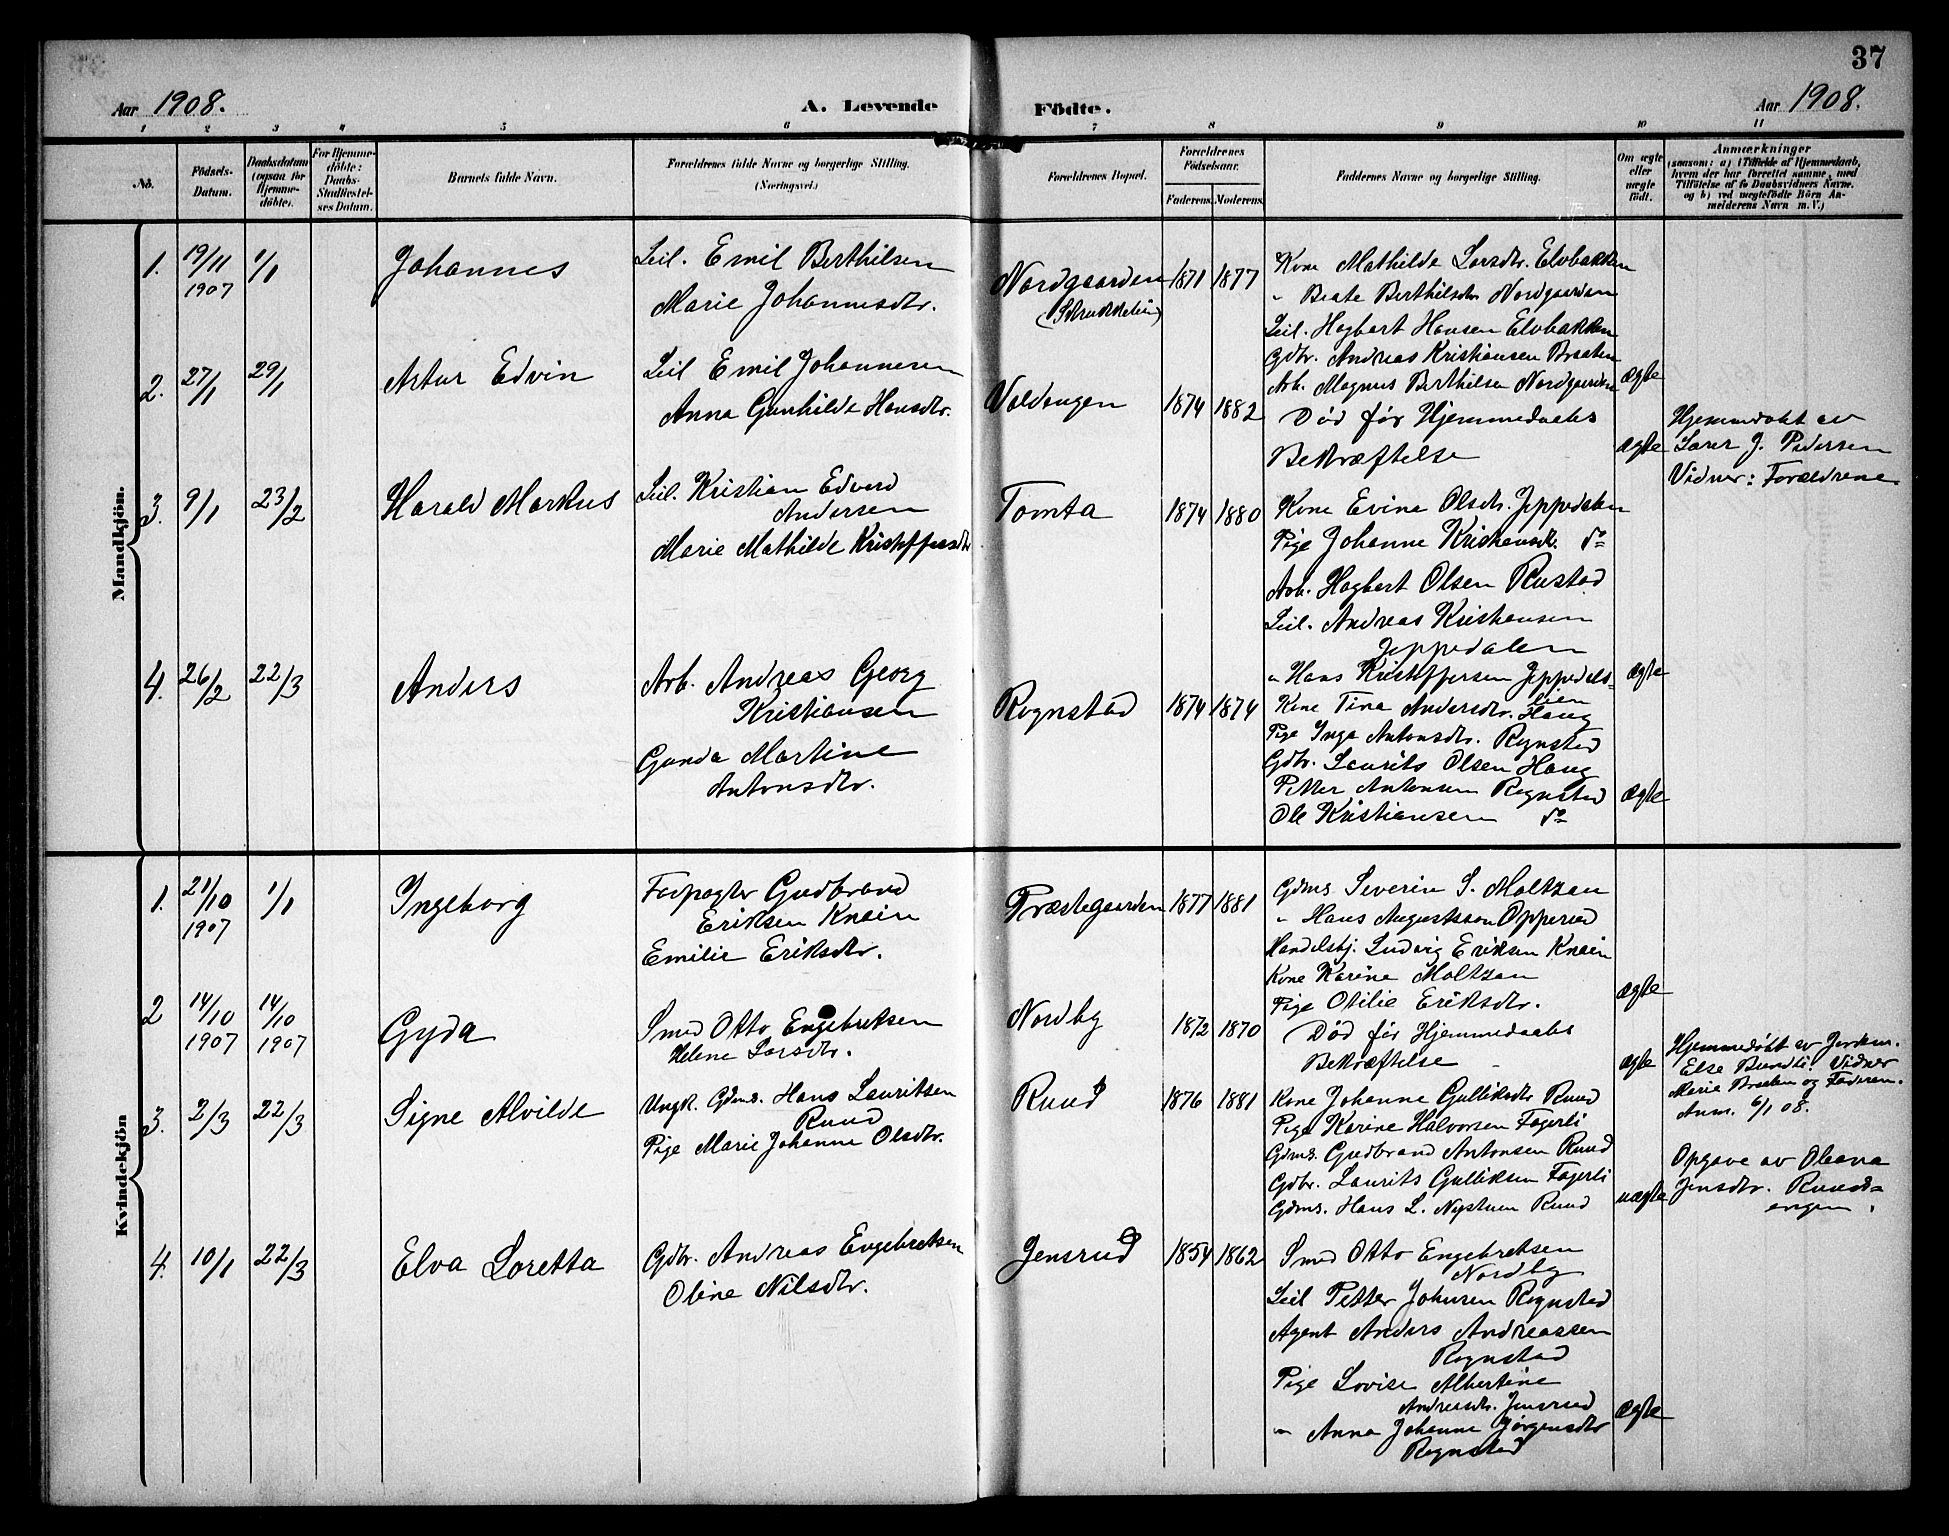 37
Aar 1908.
A. Levende Födte.
Aar 1908.
1 2 3 4 5 6 7 8 9 10 11
No.
Födsels-Datum.
Daabsdatum (ogsaa for Hjemme-döbte).
For Hjemme-döbte: Daabs-Stadfæstel-ses Datum.
Barnets fulde Navn.
Forældrenes fulde Navne og borgerlige Stilling.
(Næringsvei.)
Forældrenes Bopæl.
Forældrenes Födselsaar.
Faderens. Moderens.
Faddernes Navne og borgerlige Stilling.
Om ægte eller uægte födt.
Anmærkninger
(saasom: a) i Tilfælde af Hjemmedaab,
hvem der har forrettet samme, med
Tilföielse af to Daabsvidners Navne,
og b) ved uegtefödte Börn An-
melderens Navn m. V.)
Mandkjön.
1. 19/11 1907 1/1 Johannes
Leil. Emil Berthilsen
Marie Johannesdtr.
Nordgaarden
1871 1877
Kone Mathilde Larsdtr. Elvbakken
" Beate Berthilsdtr Nordgaarden
Leil. Hagbart Hansen Elvbakken
Gdbr. Andreas Kristiansen Braaten
Arb. Magnus Berthilsen Nordgaarden
ægte
2. 27/1 29/1 Artur Edvin
Leil Emil Johannesen
Anna Gunhilde Hansdtr.
Valdengen
1874 1882
Död før Hjemmedaabs
Bekræftelse
ægte
Hjemmedøbt av
Lærer J. Pedersen
Vidner: Forældrene
3. 9/1 23/2 Harald Markus
Leil. Kristian Edvard
Andersen
Marie Mathilde Kristoffersdtr
Tomta
1874 1880
Kone Evine Olsdtr. Jeppedalen
Pige Johanne Kristiansdtr. do
Arb. Hagbart Olsen Rustad
Leil. Andreas Kristiansen
Jeppedalen
" Hans Kristoffersen Jeppedals-
lien
ægte
4. 26/2 22/3 Anders
Arb. Andreas Georg
Kristiansen
Gunda Martine
Antonsdtr.
Rognstad
1874 1874
Kone Tina Andersdtr. Haug
Pige Inga Antonsdtr. Rognstad
Gdbr. Laurits Olsen Haug
Petter Antonsen Rognstad
Ole Kristiansen do
ægte
Kvindekjön
1. 21/10 1907 1/1 Ingeborg
Forpagter Gudbrand
Eriksen Knain
Emilie Eriksdtr.
Præstegaarden
1877 1881
Gdms. Severin S. Moltzan
" Hans Augustsson Opperud
Handelsbj. Ludvig Eriksen Knain
Kone Karine Moltzan
Pige Otilie Eriksdtr.
ægte
2 14/10 1907 14/10 1907 Gyda
Smed Otto Engebretsen
Helene Larsdtr.
Nordby
1872 1870
Død før Hjemmedaabs
Bekræftelse
ægte
Hjemmedøbt av Jordm.
Else Bundli. Vidner
Marie Braaten og Faderen.
Anm. 6/1 08.
3. 2/3 22/3 Signe Alvilde
Ungk. Gdms. Hans Lauritsen
Ruud
Pige Marie Johanne Olsdtr.
Ruud
1876 1881
Kone Johanne Gulliksdtr Ruud
Pige Karine Halvorsen Fagerli
Gdms. Gudbrand Antonsen Ruud
Gdbr. Laurits Gulliksen Fagerli
Gdms. Hans L. Nystuen Ruud
uægte
Opgave av Oleana
Jensdtr. Ruuds-
engen.
4. 10/1 22/3 Elva Loretta
Gdbr. Andreas Engebretsen
Oline Nilsdtr.
Jensrud
1854 1862
Smed Otto Engebretsen
Nordby
Leil Petter Johnsen Rognstad
Agent Anders Andreassen
Rognstad
Pige Lovise Albertine
Andreasdtr. Jensrud
" Anna Johanne Jørgensdtr
Rognstad
ægte